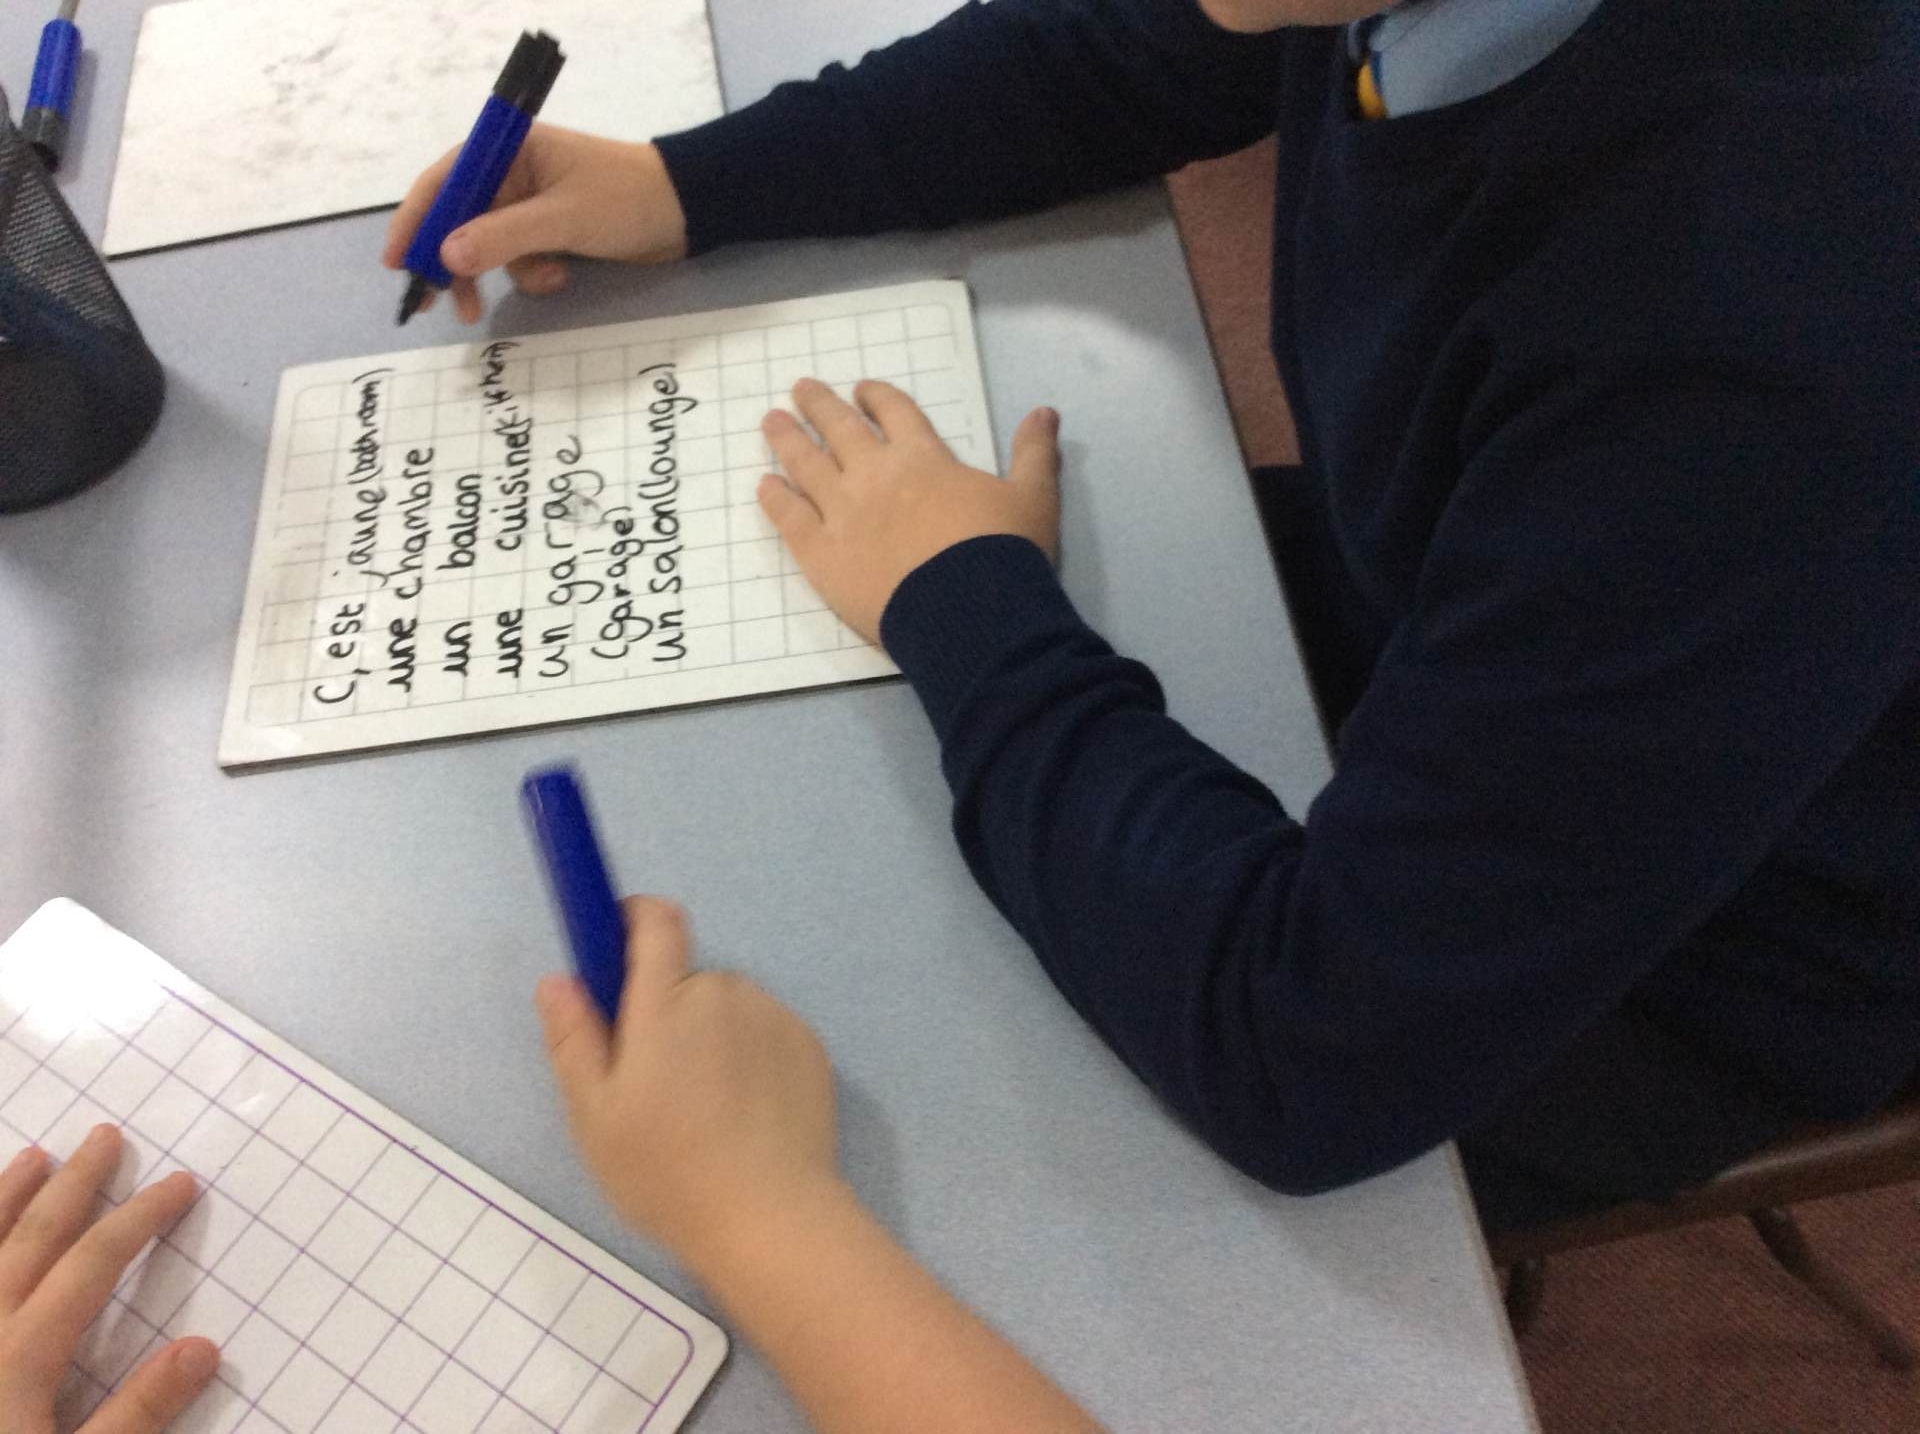 C,est jaune (bathroom)
une chambre
un balcon
une cuisine (kithen)
un garage
(garage)
un salon (lounge)